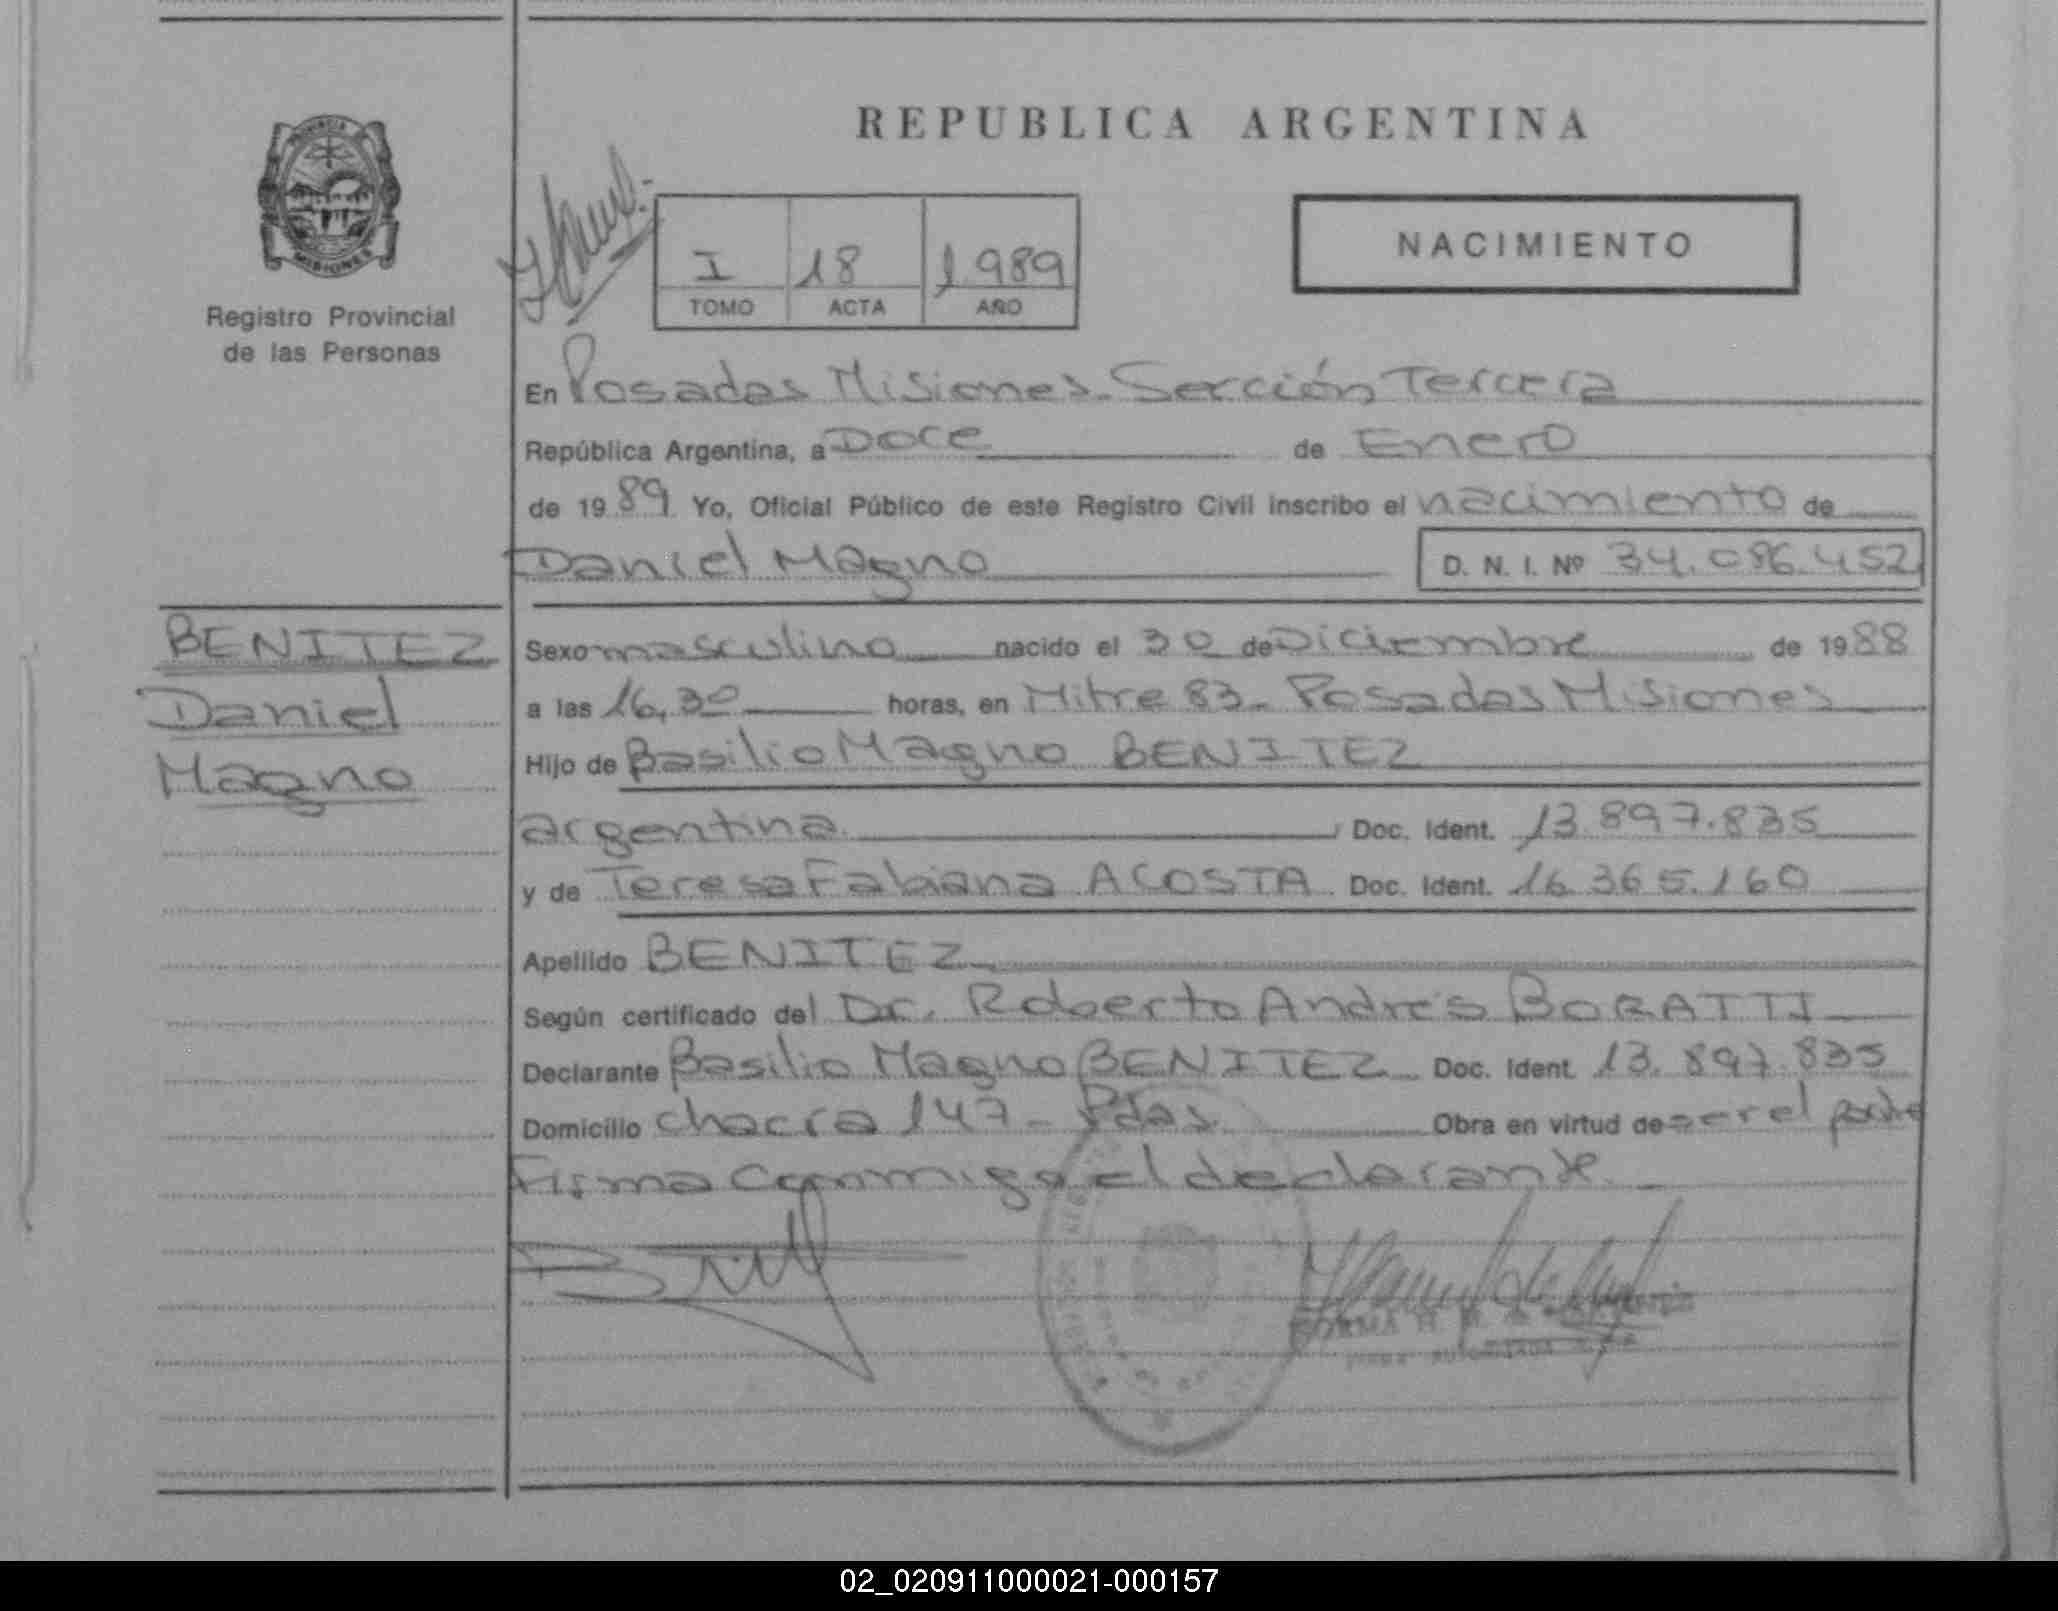 REPUBLICA ARGENTINA
MISIONES
Registro Provincial
de las Personas
I 18 1989
TOMO ACTA AÑO
NACIMIENTO
En Posadas Misiones. Sección Tercera
República Argentina, a Doce de Enero
de 1989 Yo, Oficial Público de este Registro Civil inscribo el nacimiento de
Daniel Magno D. N. I. Nº 34.086.452
BENITEZ
Daniel
Magno
Sexo masculino nacido el 30 de Diciembre de 1988
a las 16,30 horas, en Mitre 83- Posadas Misiones
Hijo de Basilio Magno BENITEZ
argentina Doc. Ident. 13.897.835
y de Teresa Fabiana ACOSTA Doc. Ident. 16.365.160
Apellido BENITEZ
Según certificado del Dr. Roberto Andrés BORATTI
Declarante Basilio Magno BENITEZ Doc. Ident. 13.897.835
Domicilio chacra 147- Pdas. Obra en virtud de ser el padre
Firma conmigo el declarante.
02_020911000021-000157